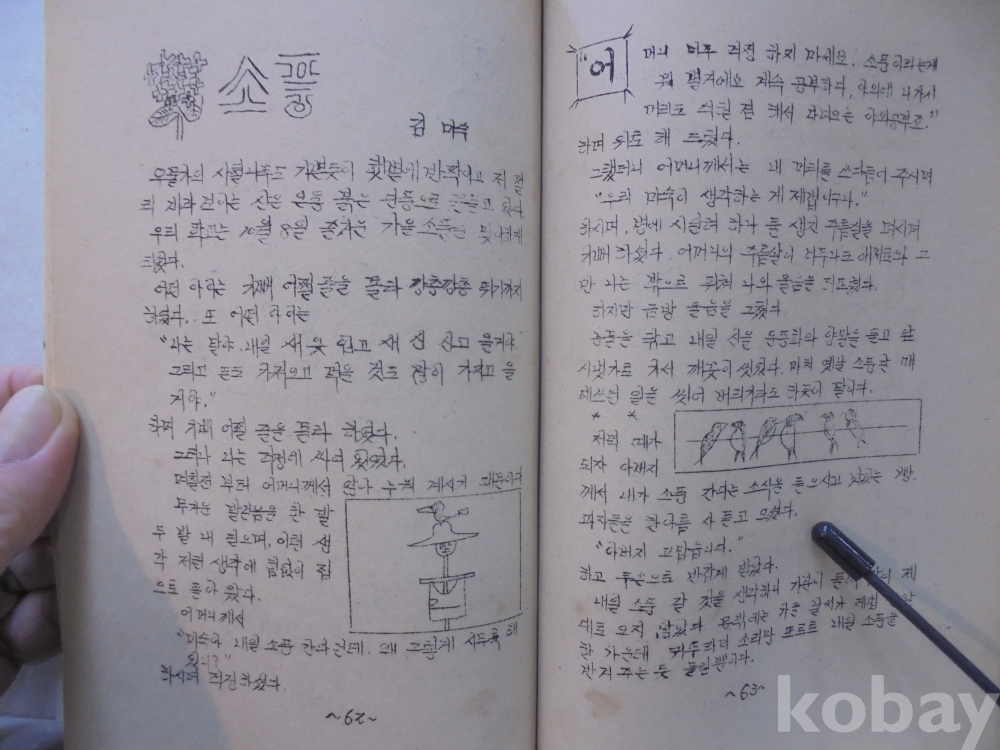 소풍
김 미숙
우물가의 사철나무도 기쁜듯이 햇볕에 반짝이고 저 멀
리 지나 보이는 산은 온통 붉은 단풍으로 물들고 있다
우리 학교는 10월 8일 즐거운 가을 소풍을 맞이하게
되었다.
어떤 아이는 기뻐 어쩔 줄을 몰라 깡충깡충 뛰기까지
하였다. 또 어떤 아이는
"나는 말야, 내일 새 옷 입고 새 신 신고 올거야
그리고 돈도 가져오고 먹을 것도 많이 가지고 올
거야."
하며 기뻐 어쩔 줄을 몰라 하였다.
그러나 나는 걱정에 싸여 있었다.
며칠전 부터 어머니께서 앓아 누워 계시기 때문이다
무거운 발걸음을 한 발
두 발 내 딛으며, 이런 생
각 저런 생각에 힘없이 집
으로 돌아 왔다.
어머니께서
"미숙아 내일 소풍 간다던데, 왜 그렇게 시무룩 해
있니?"
하시며 걱정하셨다.
~62~
어머니 너무 걱정 하지 마세요. 소풍이라는게
뭐 별거에요 계속 공부하다, 야외에 나가서
머리도 식힐 겸 해서 다녀오는 야외공부죠."
하며 위로 해 드렸다.
그랬더니 어머니께서는 내 머리를 쓰다듬어 주시며
"우리 미숙이 생각하는 게 제법이구나."
하시며, 병에 시달려 하나 둘 생긴 주름살을 펴시며
기뻐 하셨다. 어머니의 주름살이 너무나도 애처로와 그
만 나는 밖으로 뛰쳐 나와 울음을 터뜨렸다.
하지만 금방 울음을 그쳤다
눈물을 닦고 내일 신을 운동화와 양말을 들고 앞
시냇가로 가서 깨끗이 씻었다. 마치 옛날 소풍날 때
* *
저녁 때가
되자 아버지
께서 내가 소풍 간다는 소식을 들으시고 맛있는 빵,
과자들을 한아름 사 들고 오셨다.
"아버지 고맙습니다."
하고 두손으로 반갑게 받았다.
내일 소풍 갈 것을 생각하니 가슴이 들떠 잠이 제
대로 오지 않았다.
한 가운데 귀뚜라미 소리만 또르르 내일 소풍을
반겨 주는 듯 들릴 뿐이다.
~63~
kobay